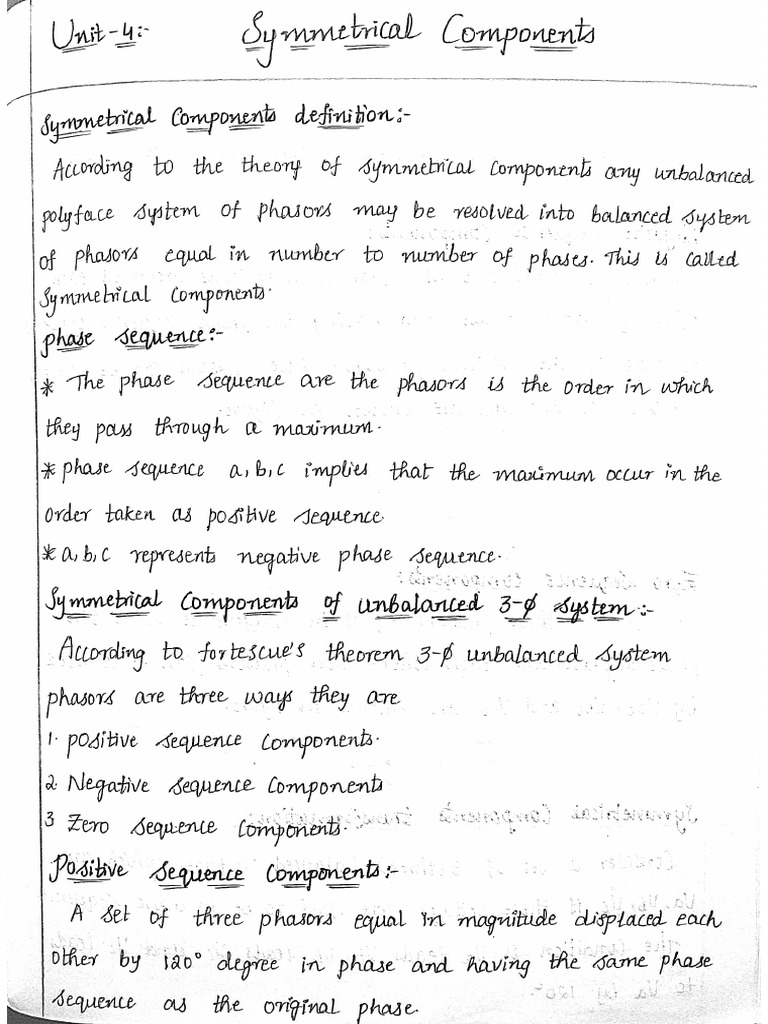 Unit-4:- Symmetrical Components
Symmetrical Components definition:-
According to the theory of symmetrical components any unbalanced
polyface system of phasors may be resolved into balanced system
of phasors equal in number to number of phases. This is called
symmetrical components.
phase sequence:-
* The phase sequence are the phasors is the order in which
they pass through a maximum.
* phase sequence a,b,c implies that the maximum occur in the
order taken as positive sequence.
* a,b,c represents negative phase sequence.
Symmetrical Components of unbalanced 3-ϕ system:-
According to fortescue's theorem 3-ϕ unbalanced system
phasors are three ways they are
1. positive sequence components.
2. Negative sequence components
3 Zero sequence components.
Positive sequence components:-
A set of three phasors equal in magnitude displaced each
other by 120° degree in phase and having the same phase
sequence as the original phase.